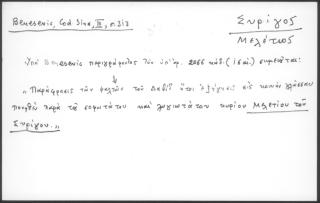 Benesevic, Cod Sina, III, σ.313
Συρίγος
Μελέτιος
Ὑπὸ Benesevic περιγράφεται τοῦ ὑπ' ἀρ. 2066 κώδ. ( ) σημειοῦται:
"Παράφρασις τῶν ψαλμῶν τοῦ Δαβίδ ἤτοι ἐξήγησις εἰς κοινὴν γλῶσσαν
ποιηθεῖσα παρὰ τοῦ σοφωτάτου καὶ λογιωτάτου κυρίου Μελετίου τοῦ
Συρίγου."